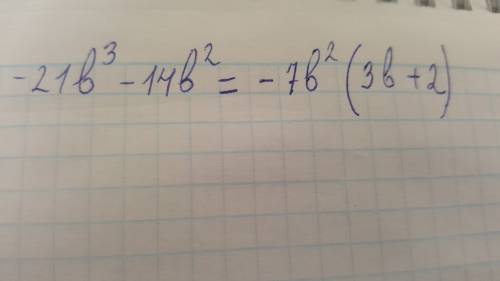 -21b³ - 14b² = -7b² (3b + 2)